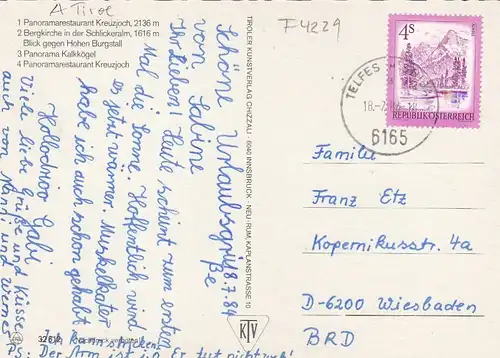 A Tirol
1 Panoramarestaurant Kreuzjoch, 2136 m
2 Bergkirche in der Schlickeralm, 1616 m
Blick gegen Hohen Burgstall
3 Panorama Kalkkögel
4 Panoramarestaurant Kreuzjoch
18.7.84
Schöne Urlaubsgrüße
von Sabine
Ihr Lieben! Heute scheint zum ersten
Mal die Sonne. Hoffentlich wird
es jetzt wärmer. Muskelkater
habe ich auch schon gehabt
vom Kraxeln.
Hollodrioo Gabi
Viele liebe Grüße und Küsse
auch von Nanni und Werner
PS: Der Arm ist i.O. Er tut nicht
TIROLER KUNSTVERLAG CHIZZALI · 6040 INNSBRUCK - NEU-RUM, KAPLANSTRASSE 10
KTV
F4229
4S
REPUBLIK ÖSTERREICH
TELFES
6165
Familie
Franz Etz
Kopernikusstr. 4a
D-6200 Wiesbaden
BRD